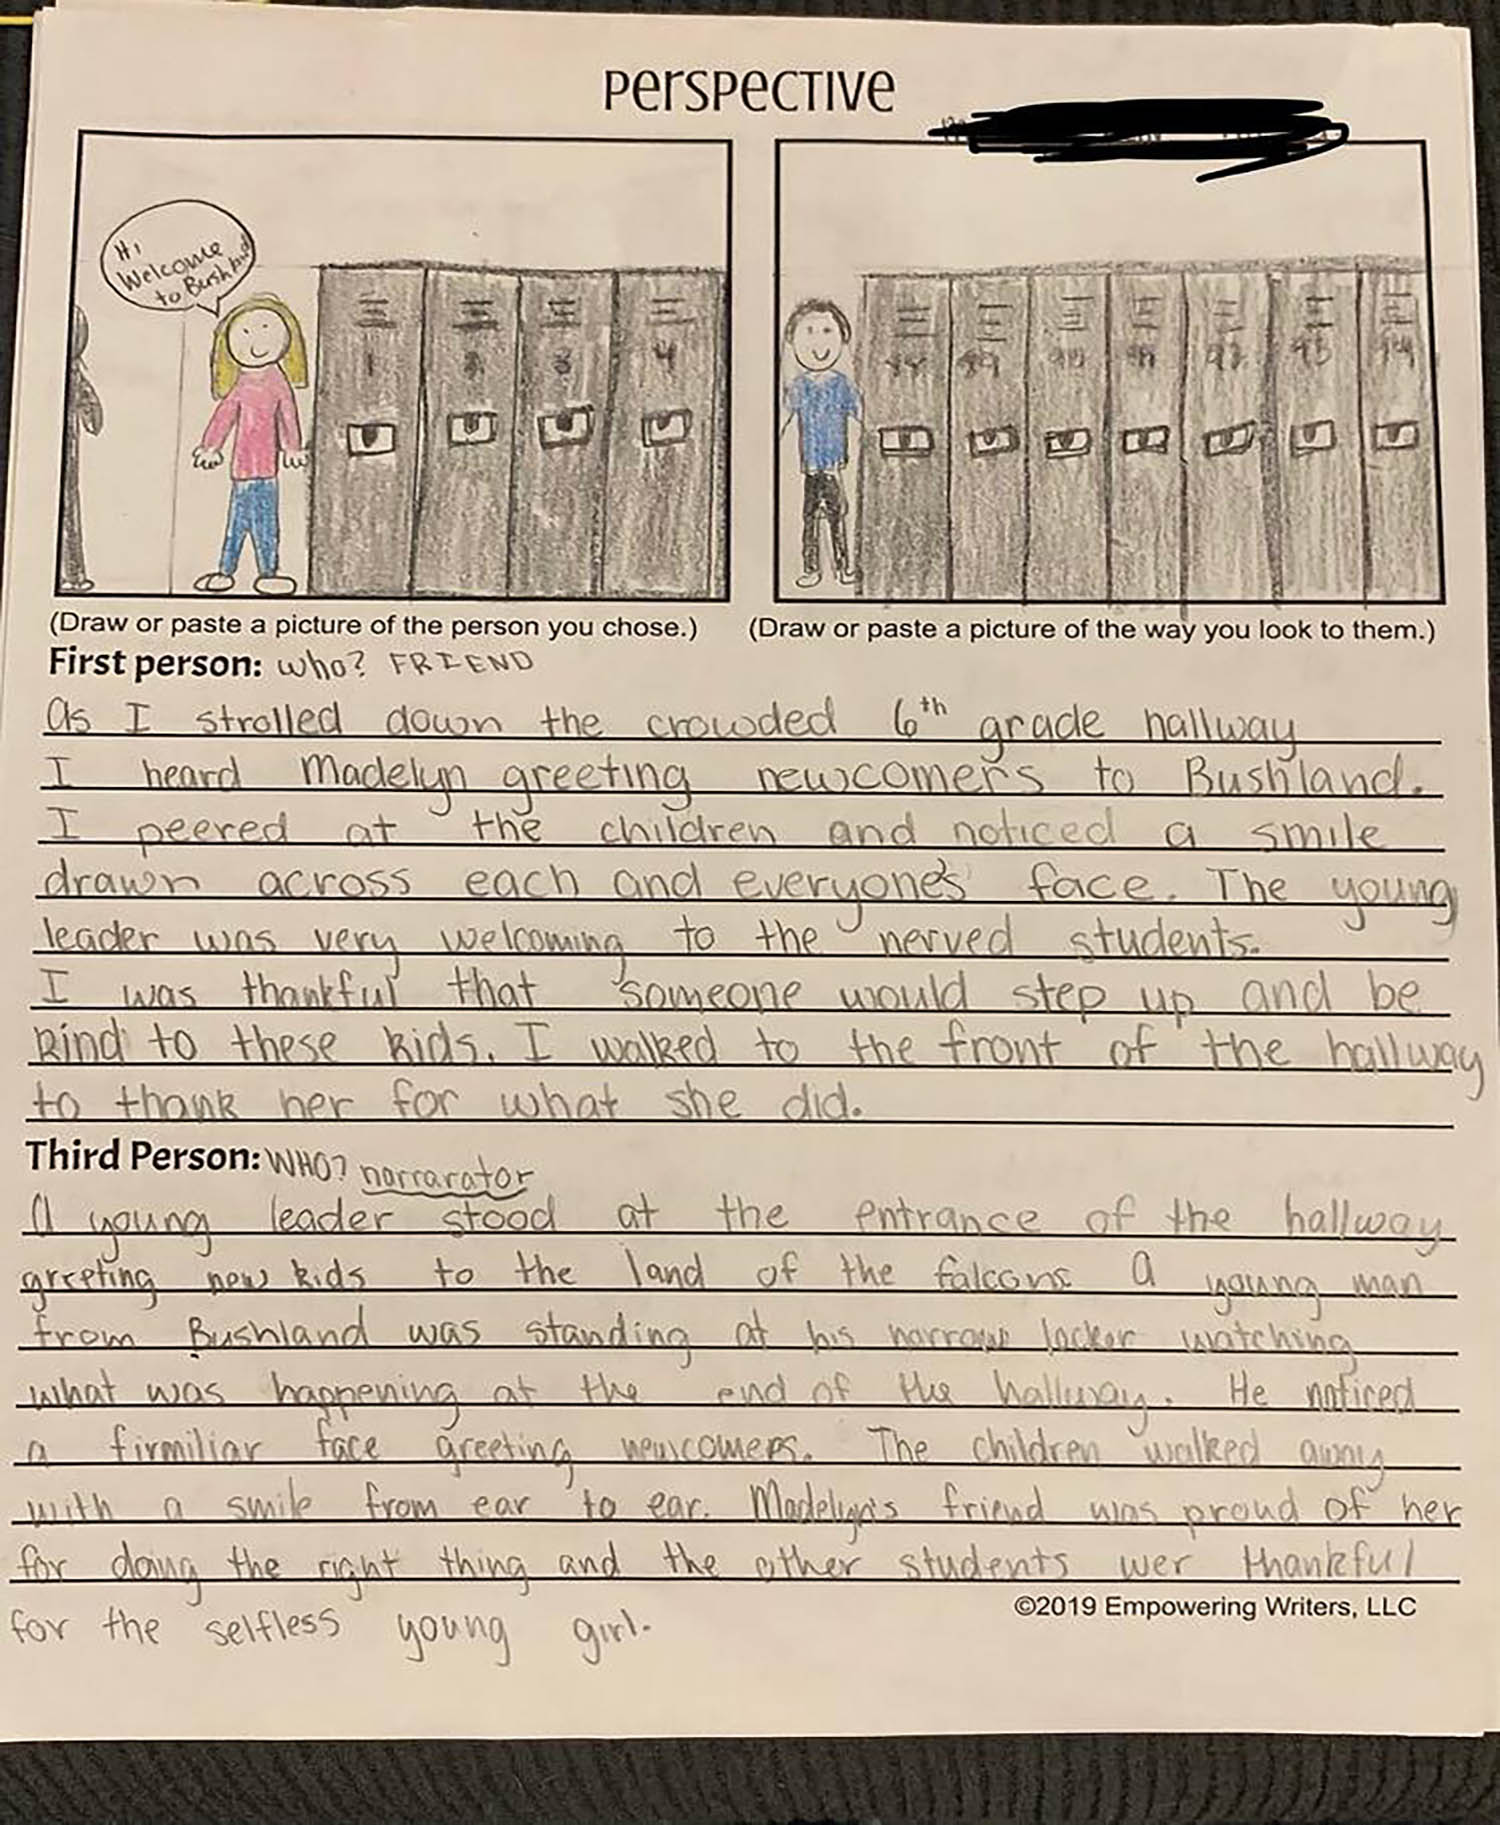 Perspective
Hi
Welcome
to Bushland
1 2 3 4
88 89 90 91 92 93 94
(Draw or paste a picture of the person you chose.)
(Draw or paste a picture of the way you look to them.)
First person: who? FRIEND
As I strolled down the crowded 6th grade hallway
I heard Madelyn greeting newcomers to Bushland.
I peered at the children and noticed a smile
drawn across each and everyone's face. The young
leader was very welcoming to the nerved students.
I was thankful that someone would step up and be
kind to these kids. I walked to the front of the hallway
to thank her for what she did.
Third Person: WHO? narrarator
A young leader stood at the entrance of the hallway
greeting new kids to the land of the falcons A young man
from Bushland was standing at his narrow locker watching
what was happening at the end of the hallway. He noticed
a firmiliar face greeting newcomers. The children walked away
with a smile from ear to ear. Madelyn's friend was proud of her
for doing the right thing and the other students wer thankful
©2019 Empowering Writers, LLC
for the selfless young girl.